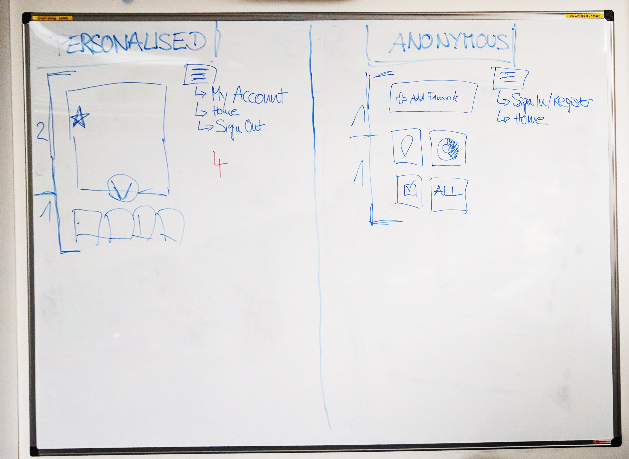 PERSONALISED
My Account
Home
Sign Out
2
1
4
ANONYMOUS
Add Favorite
Sign In/Register
Home
1
1
ALL